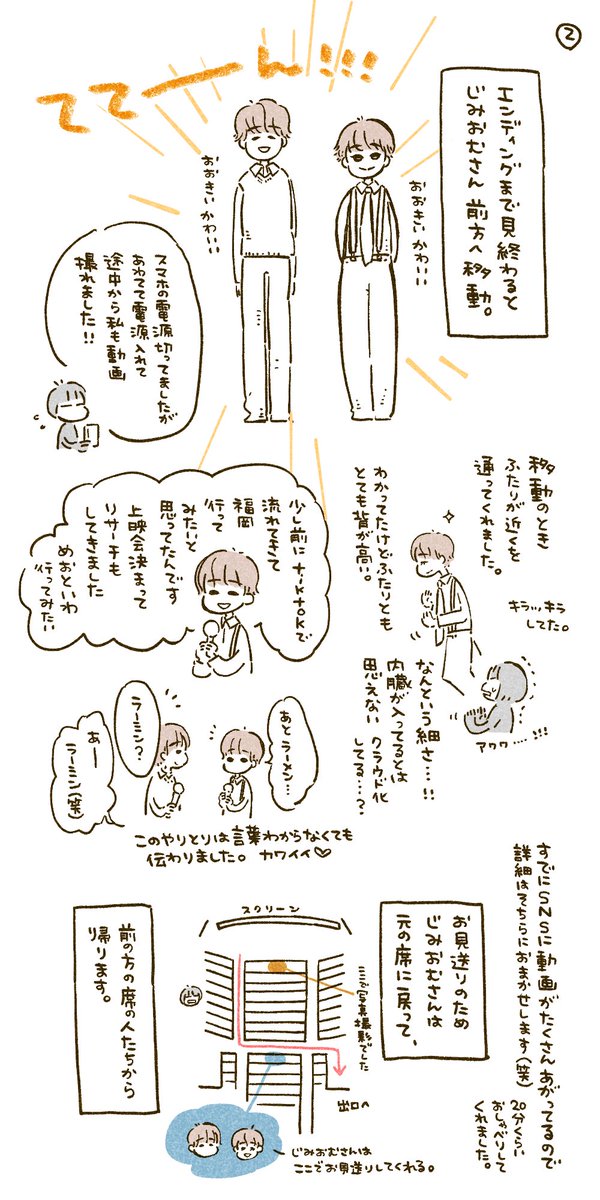 2
エンディングまで見終わると
じみおむさん 前方へ移動。
ててーーん!!!
おおきい かわいい
おおきい かわいい
スマホの電源切ってましたが
あわてて電源入れて
途中から私も動画
撮れました!!
移動のとき
ふたりが近くも
通ってくれました。
キラッキラ
してた。
わかってたけどふたりとも
とても背が高い。
なんという細さ…!!
内臓が入ってるとは
思えない クラウド化
してる…?
アワワ……!!!
少し前にtiktokで
流れてきて
福岡
行って
みたいと
思ってたんです
上映会決まって
リサーチも
してきました
めおといわ
行ってみたい
あと ラーメン…
ラーミン?
あー
ラーミン(笑)
このやりとりは言葉わからなくても
伝わりました。カワイイ♡
すでにSNSに動画がたくさんあがってるので
詳細はそちらにおまかせします(笑)
20分くらい
おしゃべりして
くれました。
お見送りのため
じみおむさんは
元の席に戻って、
スクリーン
ここで写真撮影でした
出口へ
じみおむさんは
ここでお見送りしてくれる。
前の方の席の人たちから
帰ります。